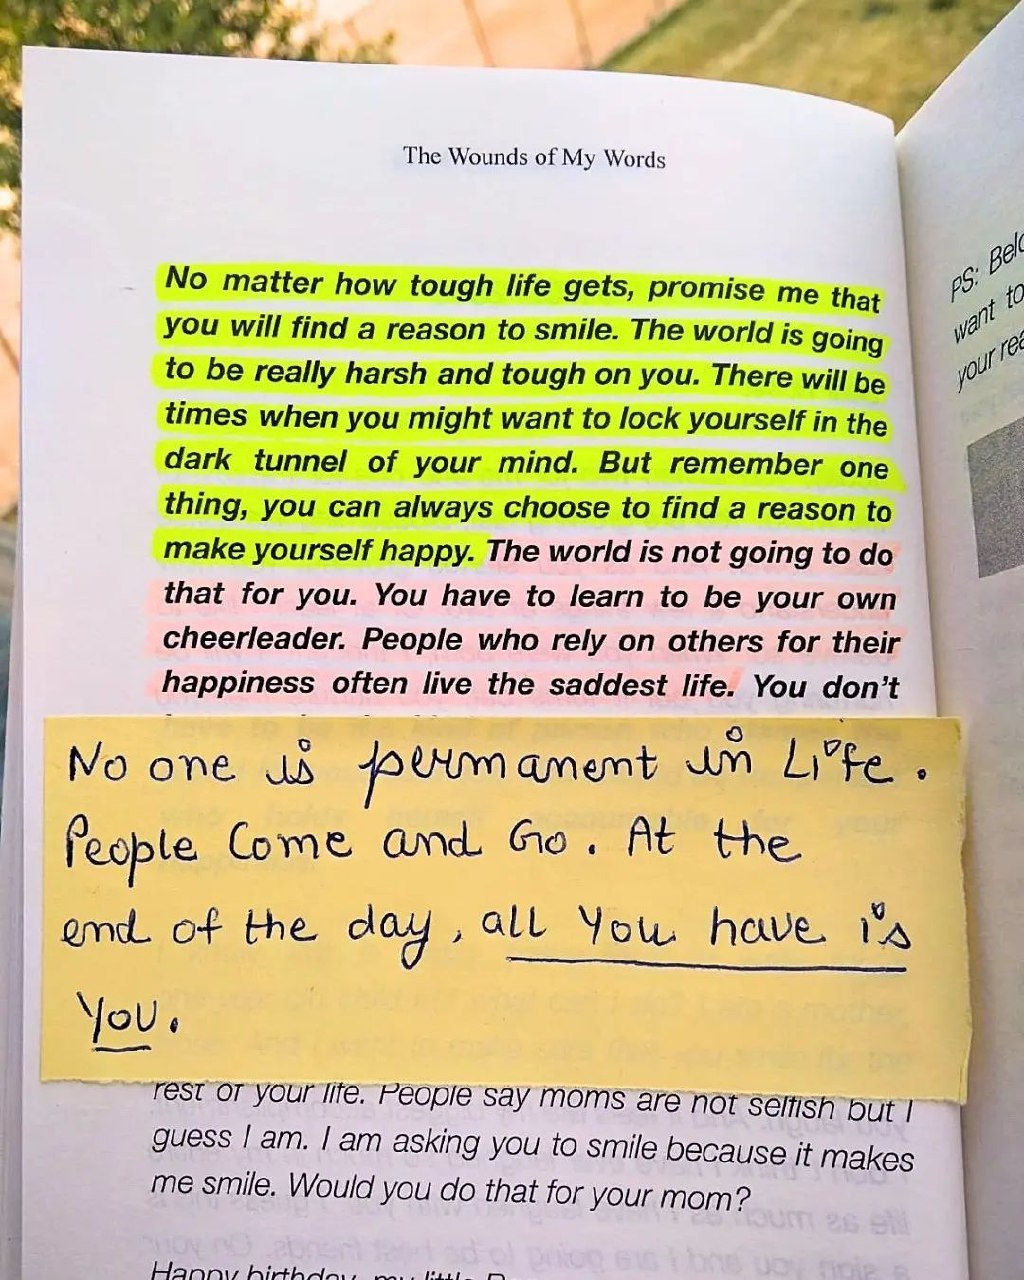 The Wounds of My Words
No matter how tough life gets, promise me that
you will find a reason to smile. The world is going
to be really harsh and tough on you. There will be
times when you might want to lock yourself in the
dark tunnel of your mind. But remember one
thing, you can always choose to find a reason to
make yourself happy. The world is not going to do
that for you. You have to learn to be your own
cheerleader. People who rely on others for their
happiness often live the saddest life. You don't
No one is permanent in Life.
People Come and Go. At the
end of the day, all You have is
You.
rest of your life. People say moms are not selfish but I
guess I am. I am asking you to smile because it makes
me smile. Would you do that for your mom?
Happy birthday, my little
PS:
want to
your